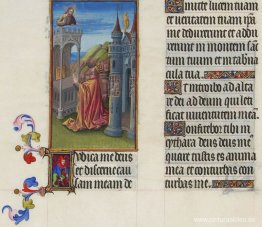 Iudica me deus
et discerne cau
sam meam de
mitte lucem tuam
et veritatem tuam ipsa
me deduxerunt et addu
xerunt in montem san
ctum tuum et in taberna
cula tua.
Et introibo ad alta
re dei ad deum qui leti
ficat iuventutem meam.
Confitebor tibi in
cythara deus deus meus
quare tristis es anima
mea et conturbas con
turbas me.